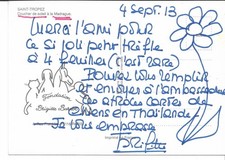 SAINT-TROPEZ
Coucher de soleil à la Madrague
4 Sept. 13
Merci l'ami pour
ce si joli petit trèfle
à 4 feuilles (c'est rare)
Pouvez vous remplir
et envoyer à l'ambassade
ces atroces cartes de
chiens en Thaïlande
Je vous embrasse
Fondation
Brigitte Bardot